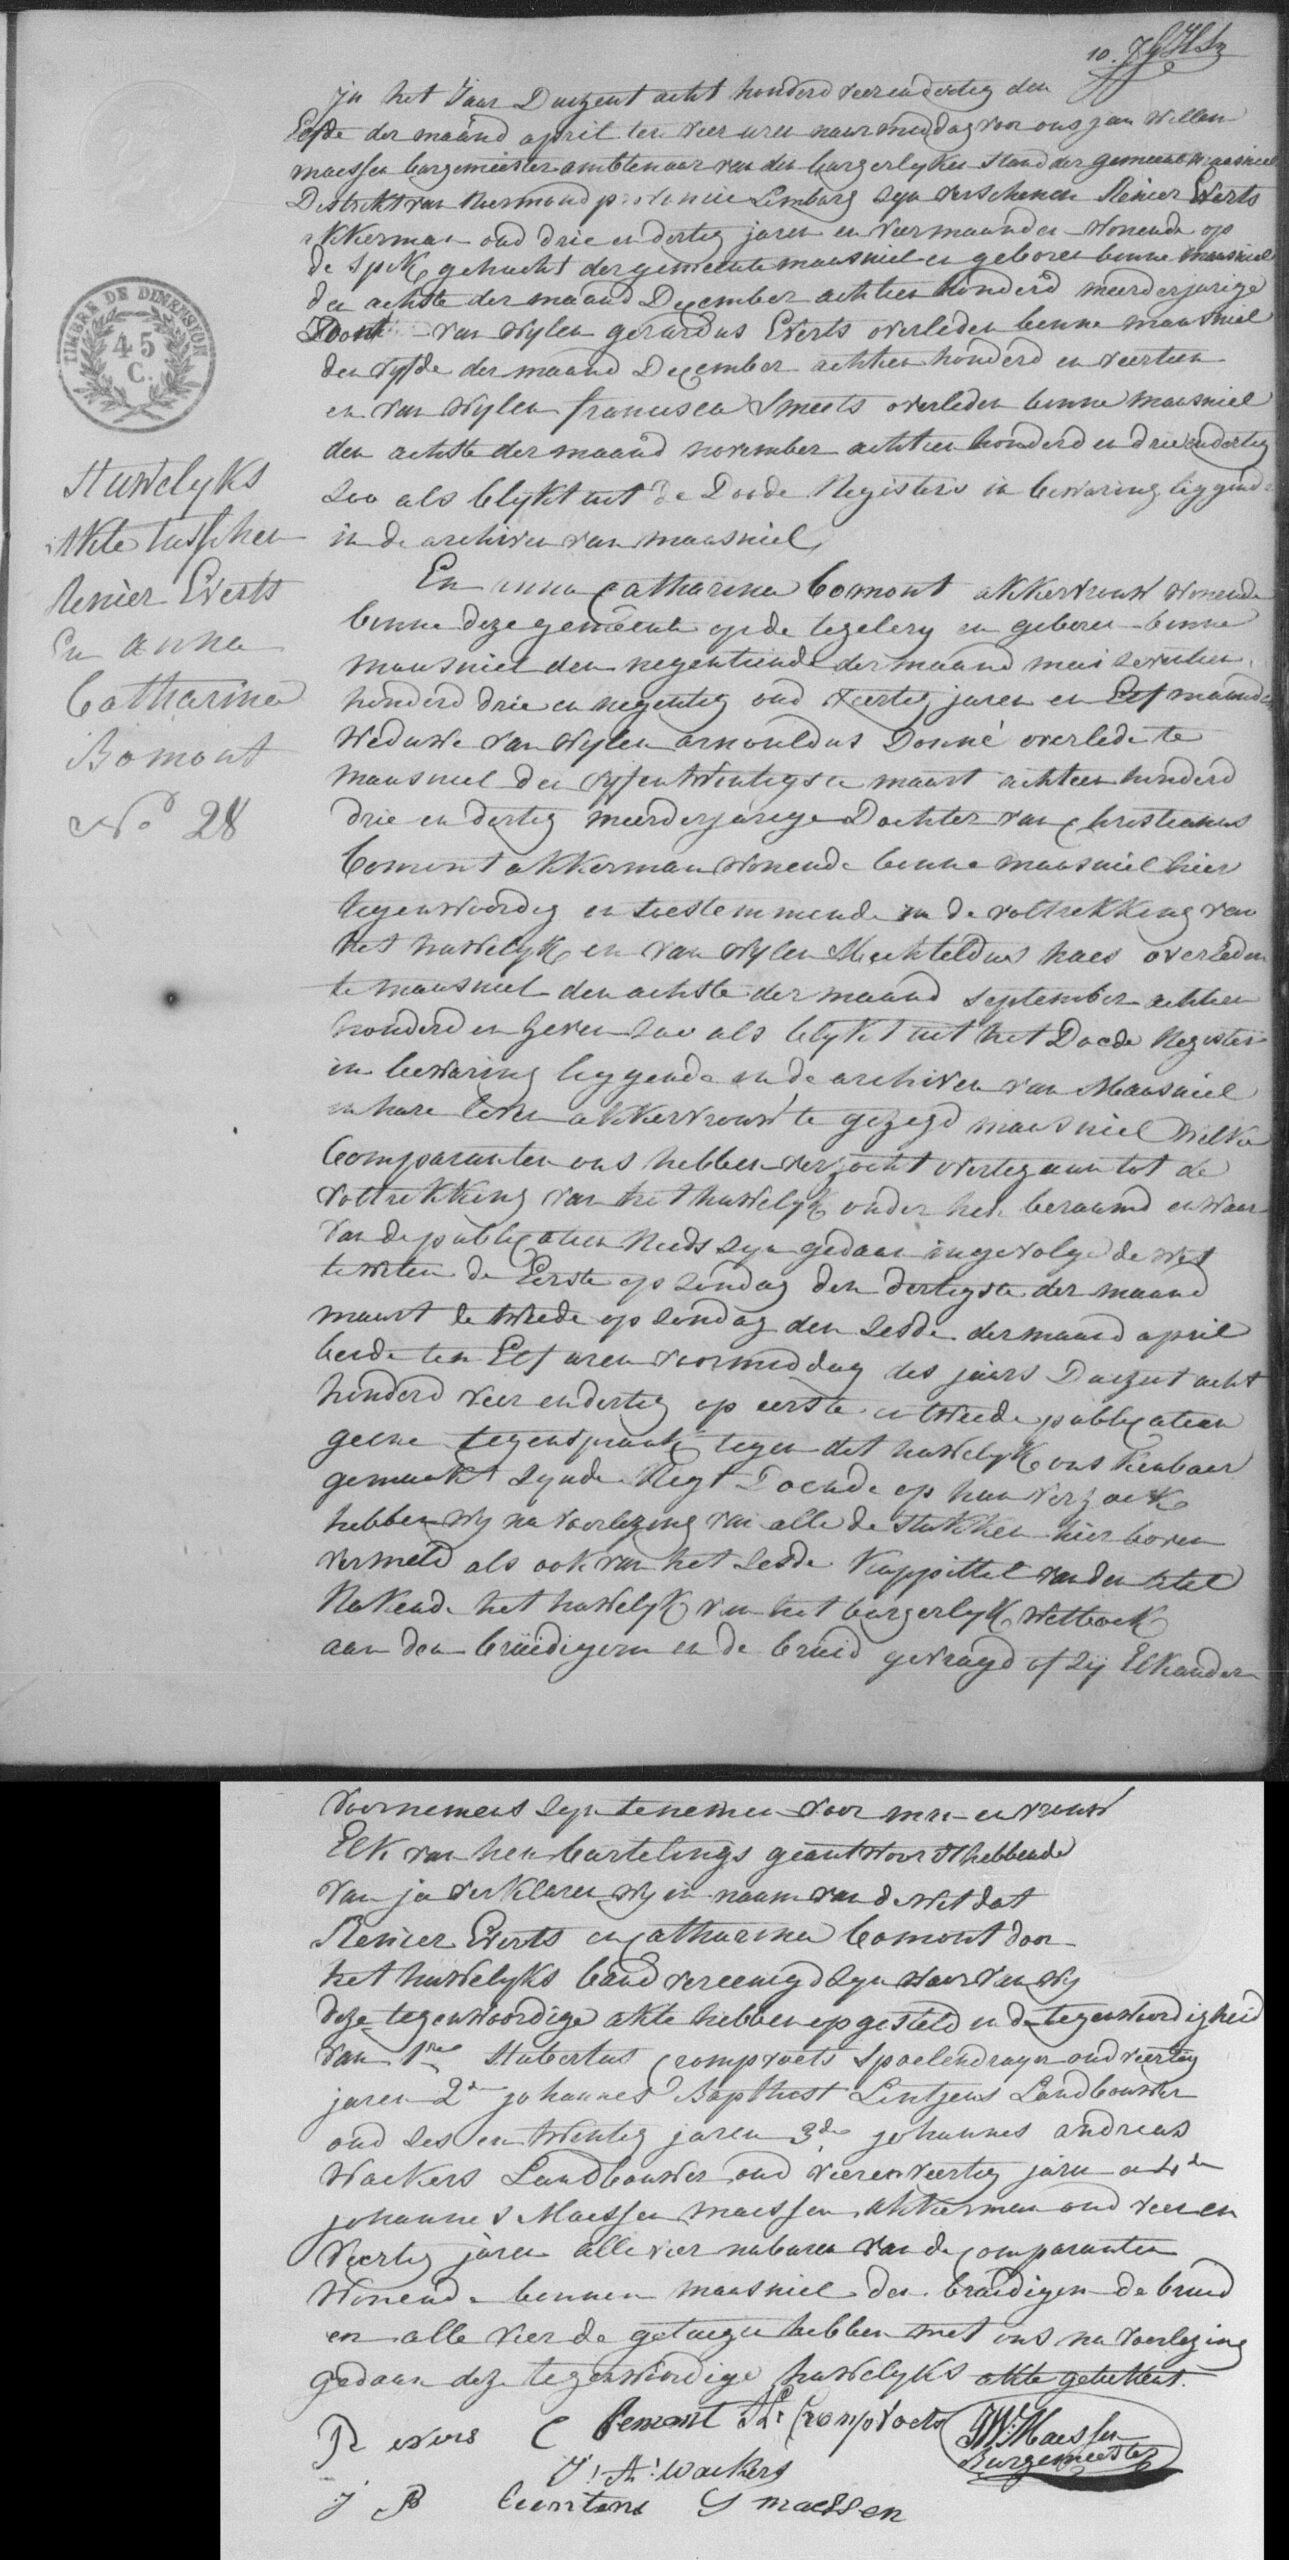 10.
In het Jaar Duizent acht honderd veerendertig den
Elfde der maand april ten veer uren naarmiddag voor ons jan Willem
maessen burgemeester ambtenaar van den burgerlyken Stand der gemeente maasniel
Destrikt van Ruermond provencie Lemburg syn verschenen Renier Everts
akkerman oud drie en dertig jaren en veer maanden wonende op
de Spik gehucht der gemeente maasniel en geboren benne maasniel
den achste der maand December achtien honderd meerderjarige
Zoon van wylen gerardus Everts overleden benne maasniel
den vyfde der maand December achtien honderd en veertien
en van wylen francisca Smeets overleden benne maasniel
den achste der maand november achtien honderd en drie en dertig
soo als blykt uit de Doode Registers in bewaring liggende
in de archiven van maasniel
TIMBRE DE DIMENSION
45
C.
Huwelyks
akte tusschen
Renier Everts
En anna
Catharina
Bomont
No 28
En anna catharina bomont akkervrouw wonende
benne deze gemeente op de tegelery en geboren benne
maasniel den negentiende der maand mai seventien
honderd drie en negentig oud veertig jaren en Elf maanden
Weduwe van wylen arnouldus Donné overlede te
maasniel den vyfentwentigste maart achtien honderd
drie en dertig meerderjarige Dochter van christianus
bomont akkerman wonende benne maasniel hier
tegenwoordig en toestemmende in de voltrekking van
het huwelyk en van wylen Mechteldus haes overleden
te maasniel den achste der maand september achtien
honderd en zeven soo als blykt uit het Doode Register
in bewaring leggende in de archiven van Maasniel
in hare leven akkervrouw te gezegd maasniel Welke
Comparanten ons hebben verzocht overtegaan tot de
voltrekking van het huwelyk onder hen beraamd en waar
van de publicatien reeds syn gedaan ingevolge de wet
te weten de Eerste op sondag den dertigste der maand
maart de twede op sondag den sesde der maand april
beide ten Elf uren voormeddag des jaars Duizent acht
honderd veer en dertig op eerste en tweede publicatien
geene tegenspraak tegen dit huwelyk ons kenbaer
gemaakt synde Regt Doende op hun verzoek
hebben wy na voorlezing van alle de stukken hier boven
vermeld als ook van het sesde kappittel van den titel
Rakende het huwelyk van het burgerlyk Wetboek
aan den bruidigom en de bruid gevraagd of sij Elkander
voornemens syn te nemen voor man en vrouw
Elk van hen bartelings geantwoord hebbende
van ja verklaren wy in naam van de wet dat
Renier Everts en catharina bomont door
het huwelyks band vereenigd syn waar van wy
deze tegenwoordige akte hebben opgesteld in de tegenwoordigheid
van 1ne Hubertus crompvoets Spoelendrayer oud veertig
jaren 2de johannes Bapthist Lintjens Landbouwer
oud ses en twentig jaren 3de johannes andreas
Wackers Landbouwer oud veerenveertig jaren en 4de
johannes Maessen maessen akkerman oud veer en
veertig jaren alle veer naburen van de comparanten
wonende bennen maasniel den bruidigom de bruid
en alle veer de getuigen hebben met ons na voorlezing
gedaan deze tegenwoordige huwelyks akte geteekent.
R evers C bemont H: Crompvoets JW: Maessen
Burgemeester
J: A: wackers
J B Lientiens J maessen